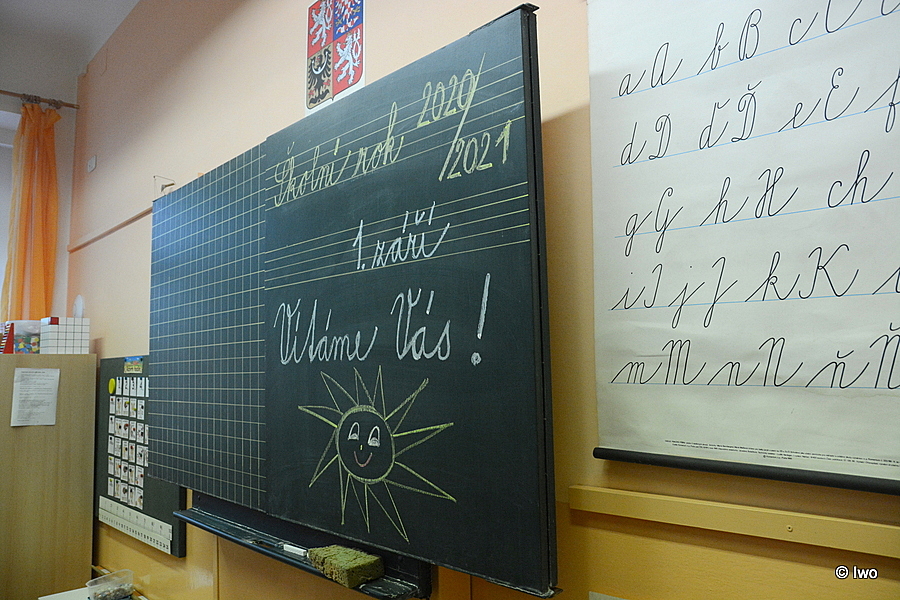 Školní rok 2020/2021
1. září
Vítáme Vás!
a A b B c C
d D ď Ď e E f
g G h H ch
i I j J k K
m M n N ň Ň
© Iwo